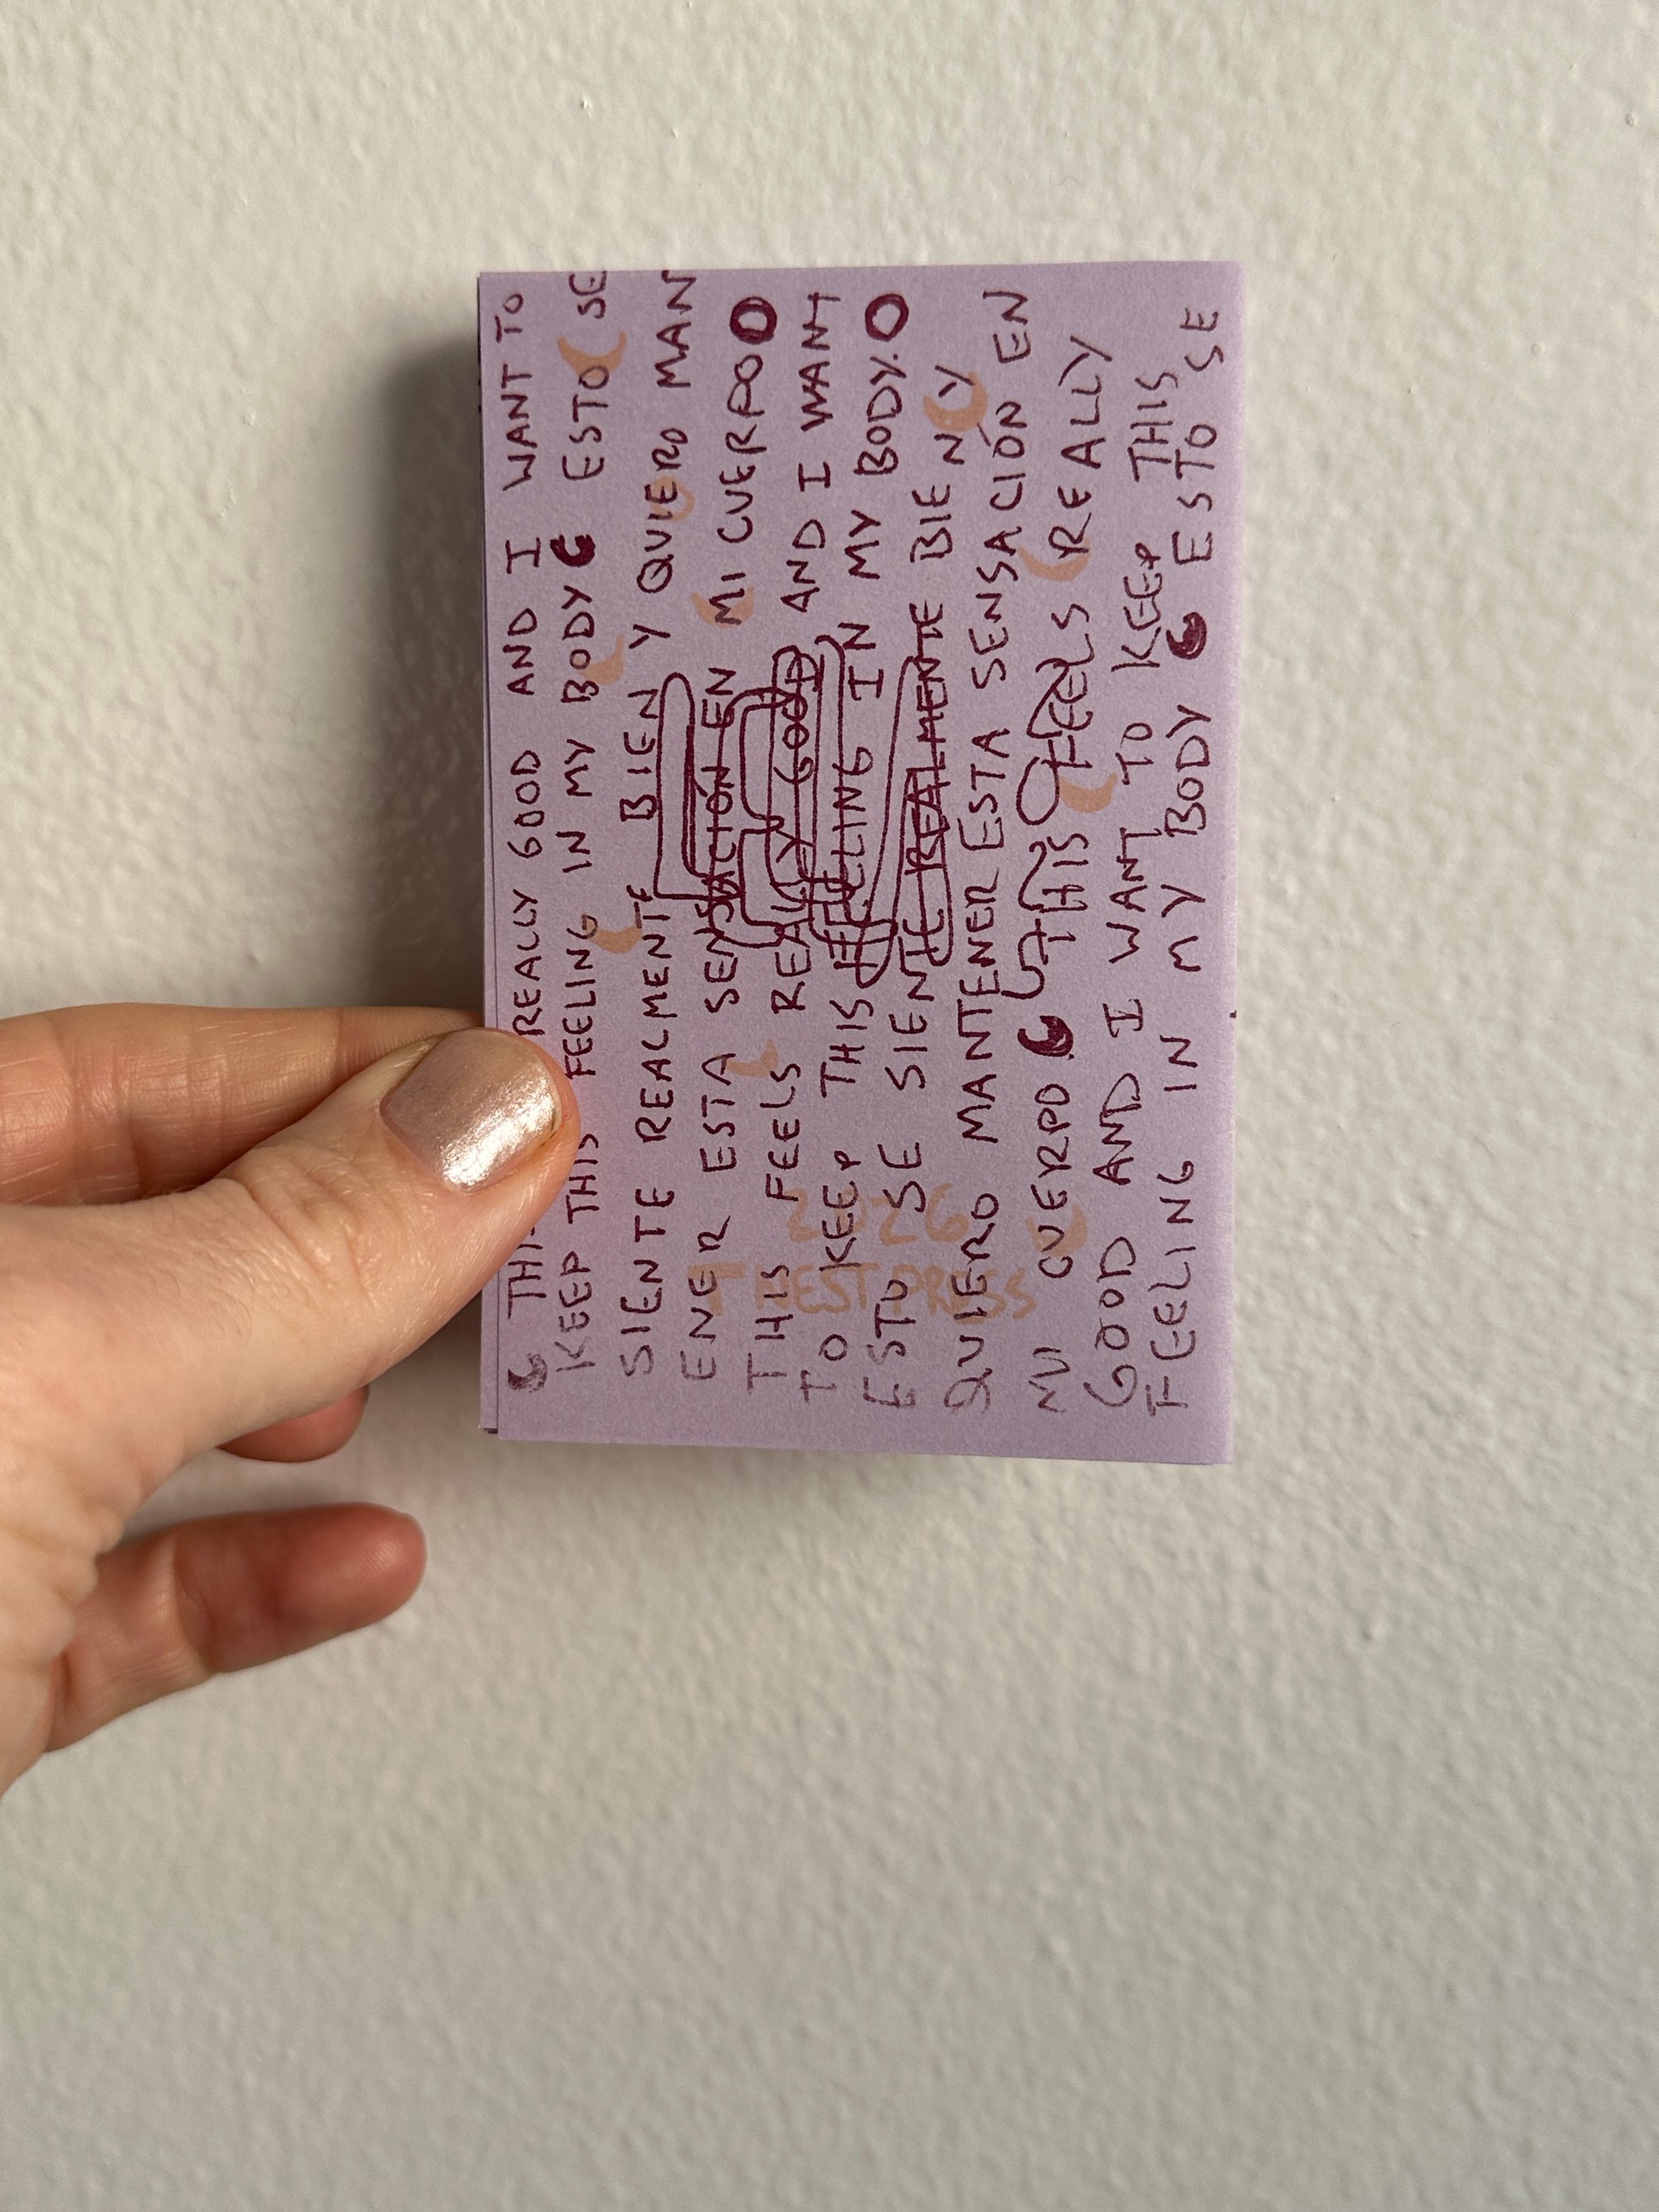 REALLY GOOD AND I WANT TO
KEEP THIS FEELING IN MY BODY ESTO SE
SIENTE REALMENTE BIEN Y QUIERO MAN
ENER ESTA SENSACIÓN EN MI CUERPO
THIS FEELS REALLY GOOD AND I WANT
TO KEEP THIS FEELING IN MY BODY.
ESTO SE SIENTE REALMENTE BIEN Y
QUIERO MANTENER ESTA SENSACIÓN EN
MI CUERPO THIS FEELS REALLY
GOOD AND I WANT TO KEEP THIS
FEELING IN MY BODY ESTO SE
2026
PRESS